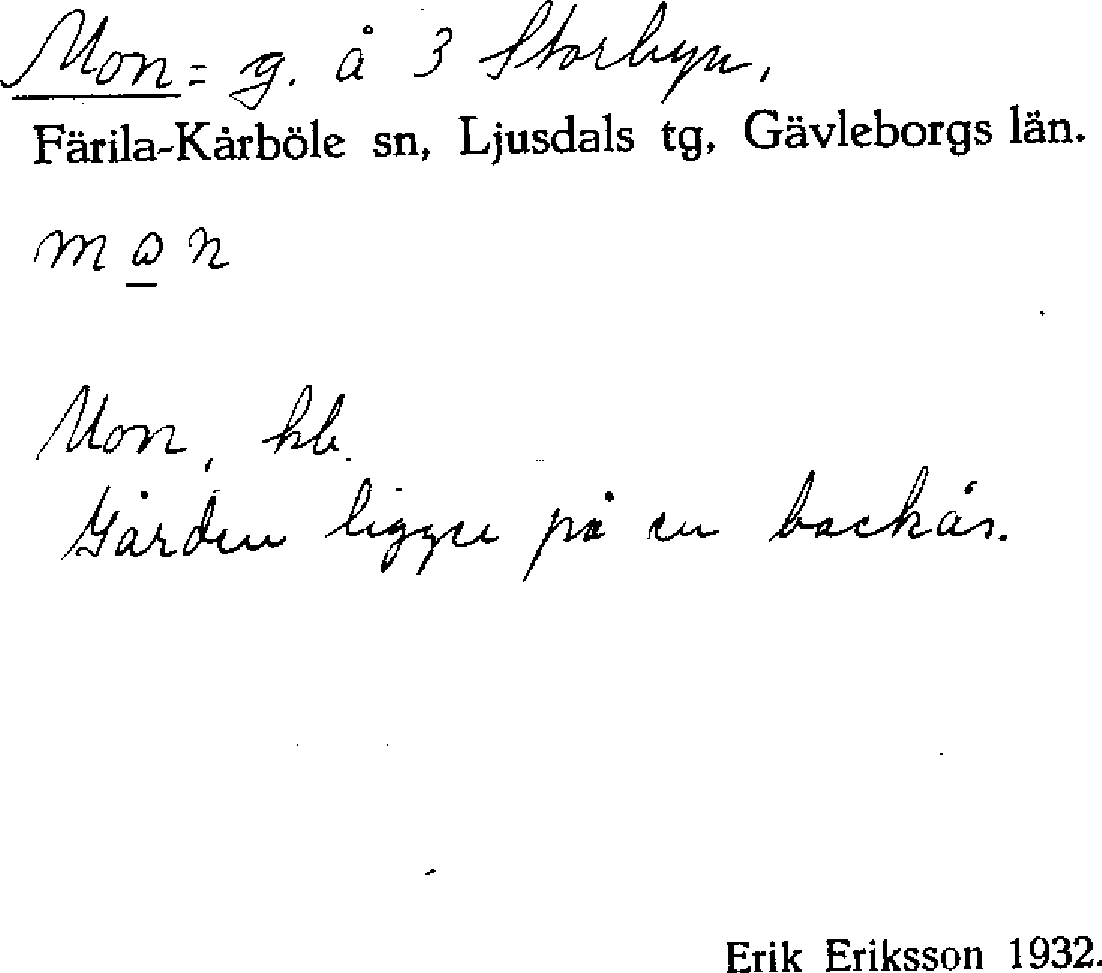 Mon = g. å 3 Storbyn,
Färila-Kårböle sn, Ljusdals tg, Gävleborgs län.
m ω n
Mon, hb.
Gården ligger på en backås.
Erik Eriksson 1932.